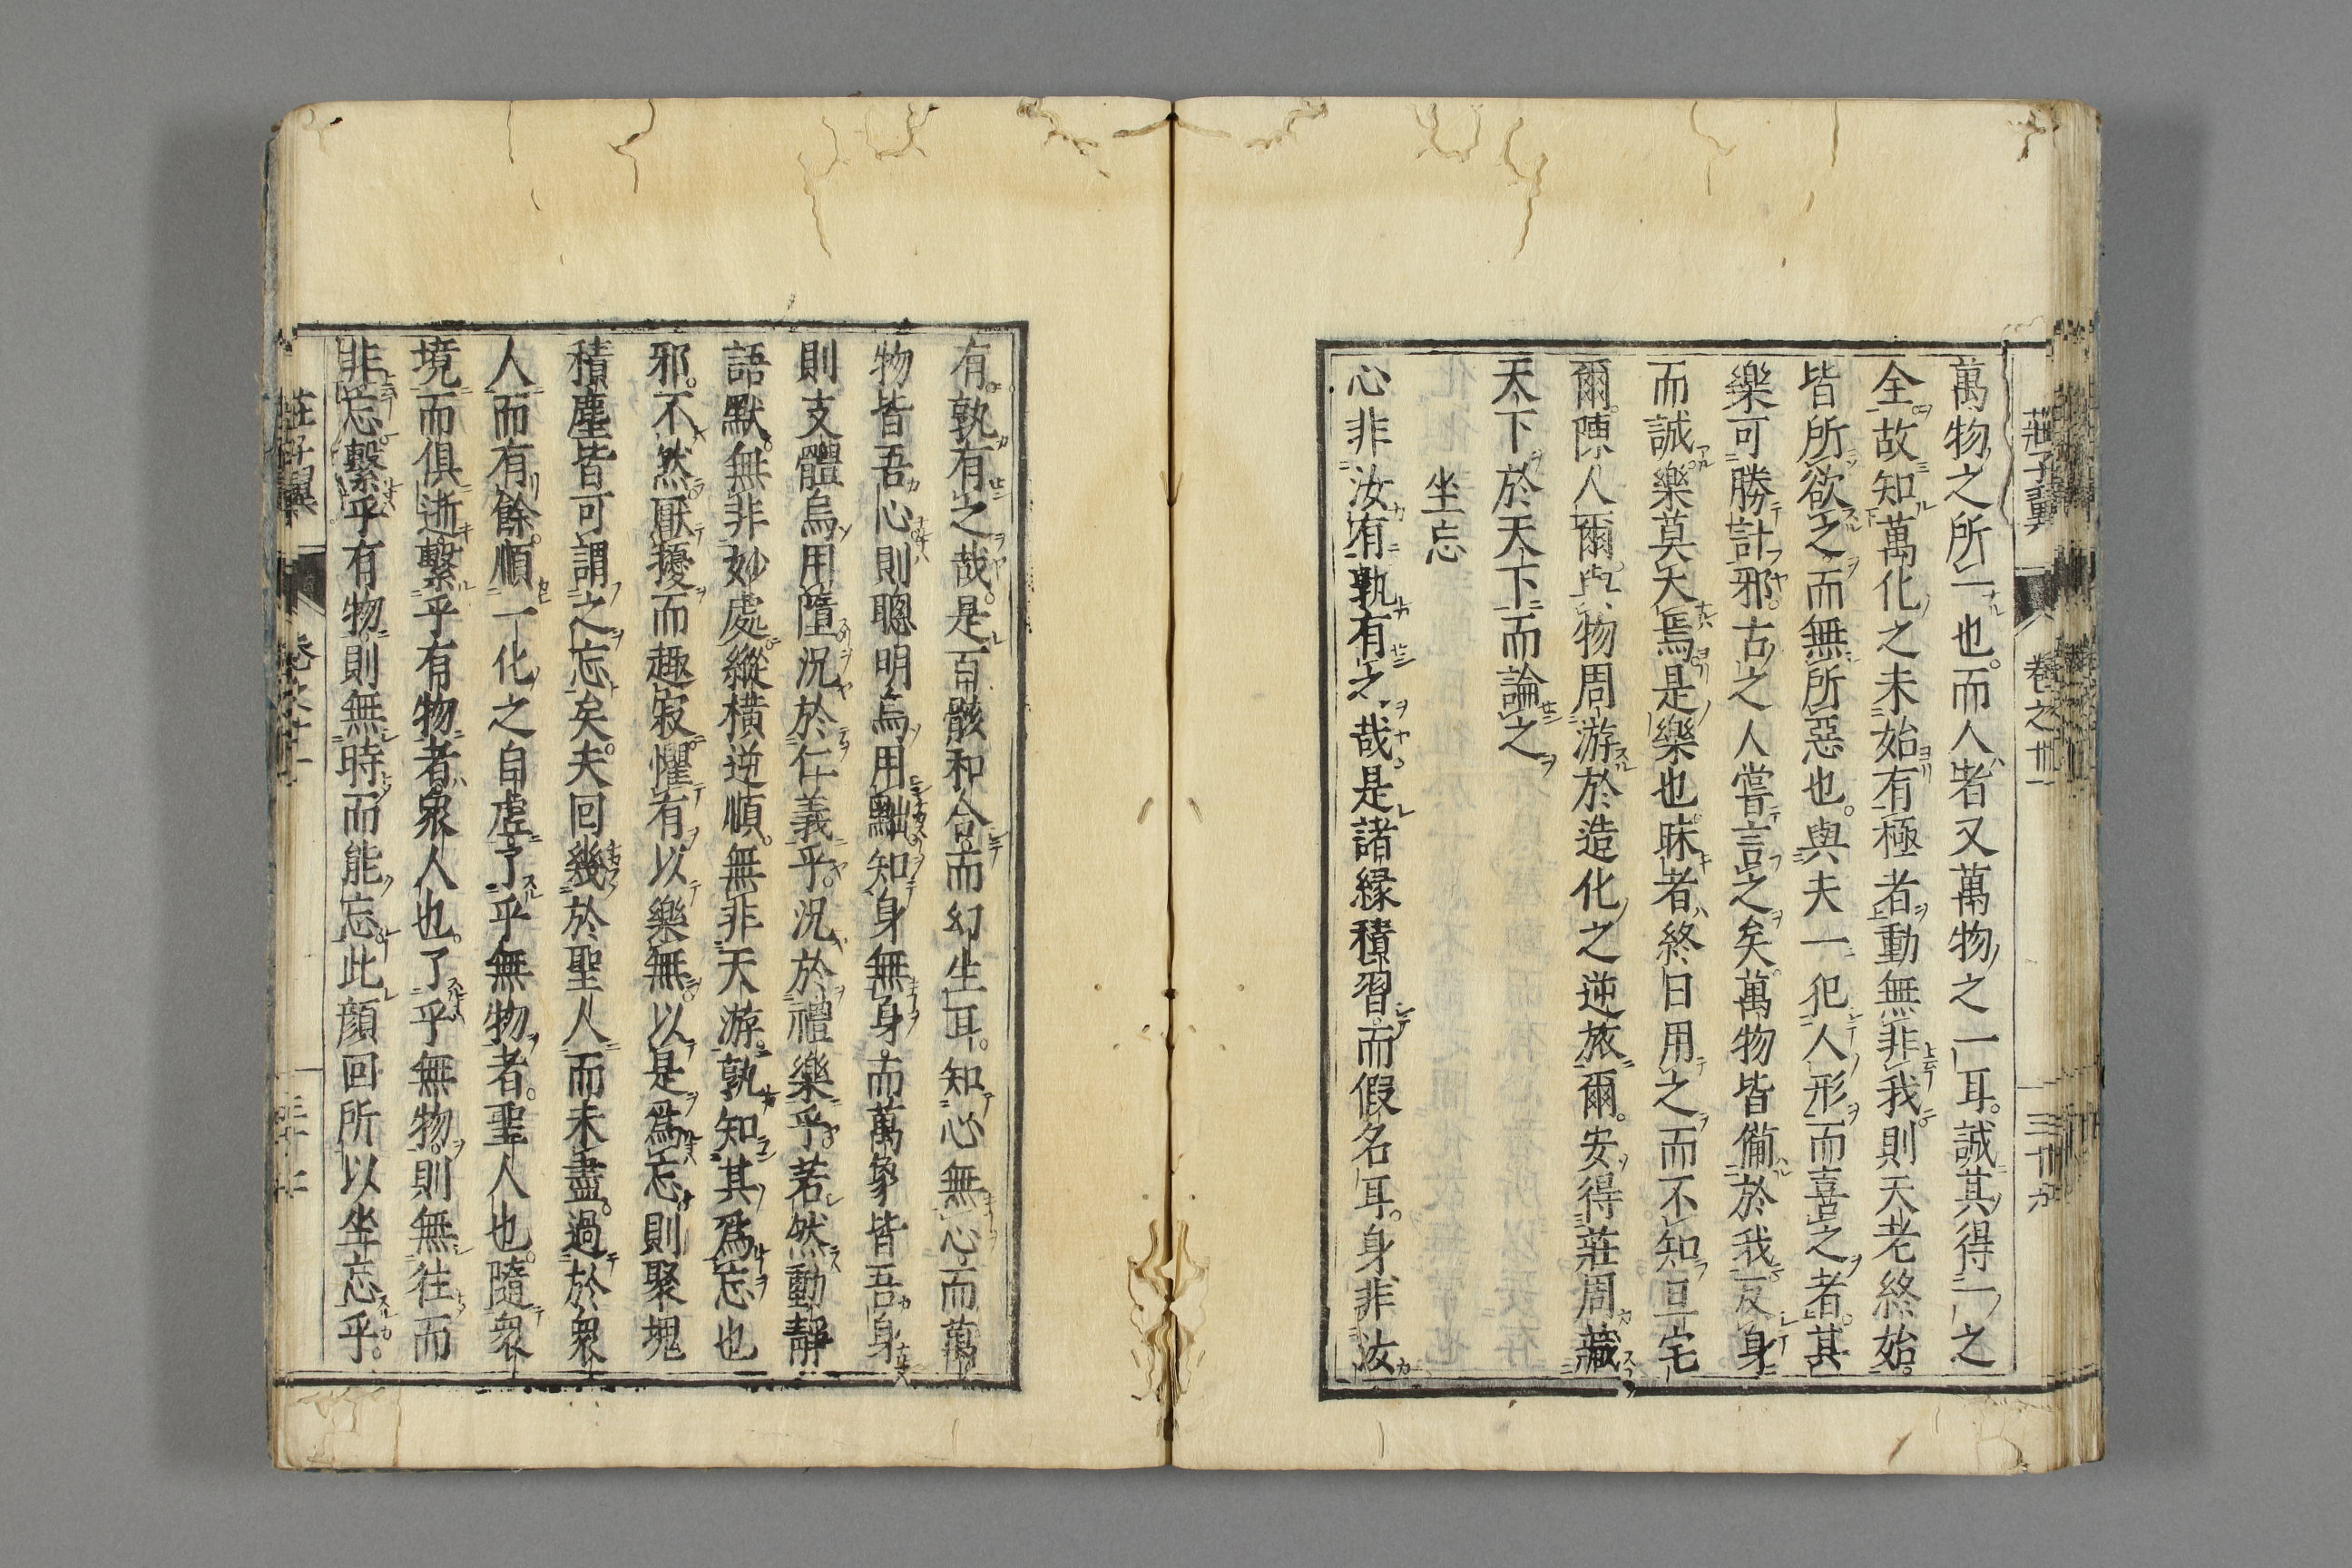 莊子翼 卷之十一
萬物之所一也。而人者又萬物之一耳。誠其得一之
全。故知萬化之未始有極者。動無非我。則天老終始。
皆所欲之而無所惡也。與夫一犯人形而喜之者。其
樂可勝計邪。古之人嘗言之矣。萬物皆備於我。反身
而誠。樂莫大焉。是樂也。昧者終日用之而不知。旦宅
爾。陳人爾。與物周游於造化之逆旅爾。安得莊周藏
天下於天下而論之
坐忘
心非汝有。孰有之哉。是諸緣積習。而假名耳。身非汝
有。孰有之哉。是百骸和合。而幻生耳。知心無心。而萬
物皆吾心。則聰明烏用黜。知身無身。而萬象皆吾身。
則支體烏用隳。況於仁義乎。況於禮樂乎。若然動靜
語默。無非妙處。縱橫逆順。無非天游。孰知其爲忘也
邪。不然厭擾而趣寂。懼有以樂無。以是爲忘。則聚塊
積塵。皆可謂之忘矣。夫回幾於聖人而未盡。過於衆
人而有餘。順一化之自虛。了乎無物者。聖人也。隨衆
境而俱逝。繫乎有物者。衆人也。了乎無物。則無往而
非忘。繫乎有物。則無時而能忘。此顏回所以坐忘乎。
莊子翼